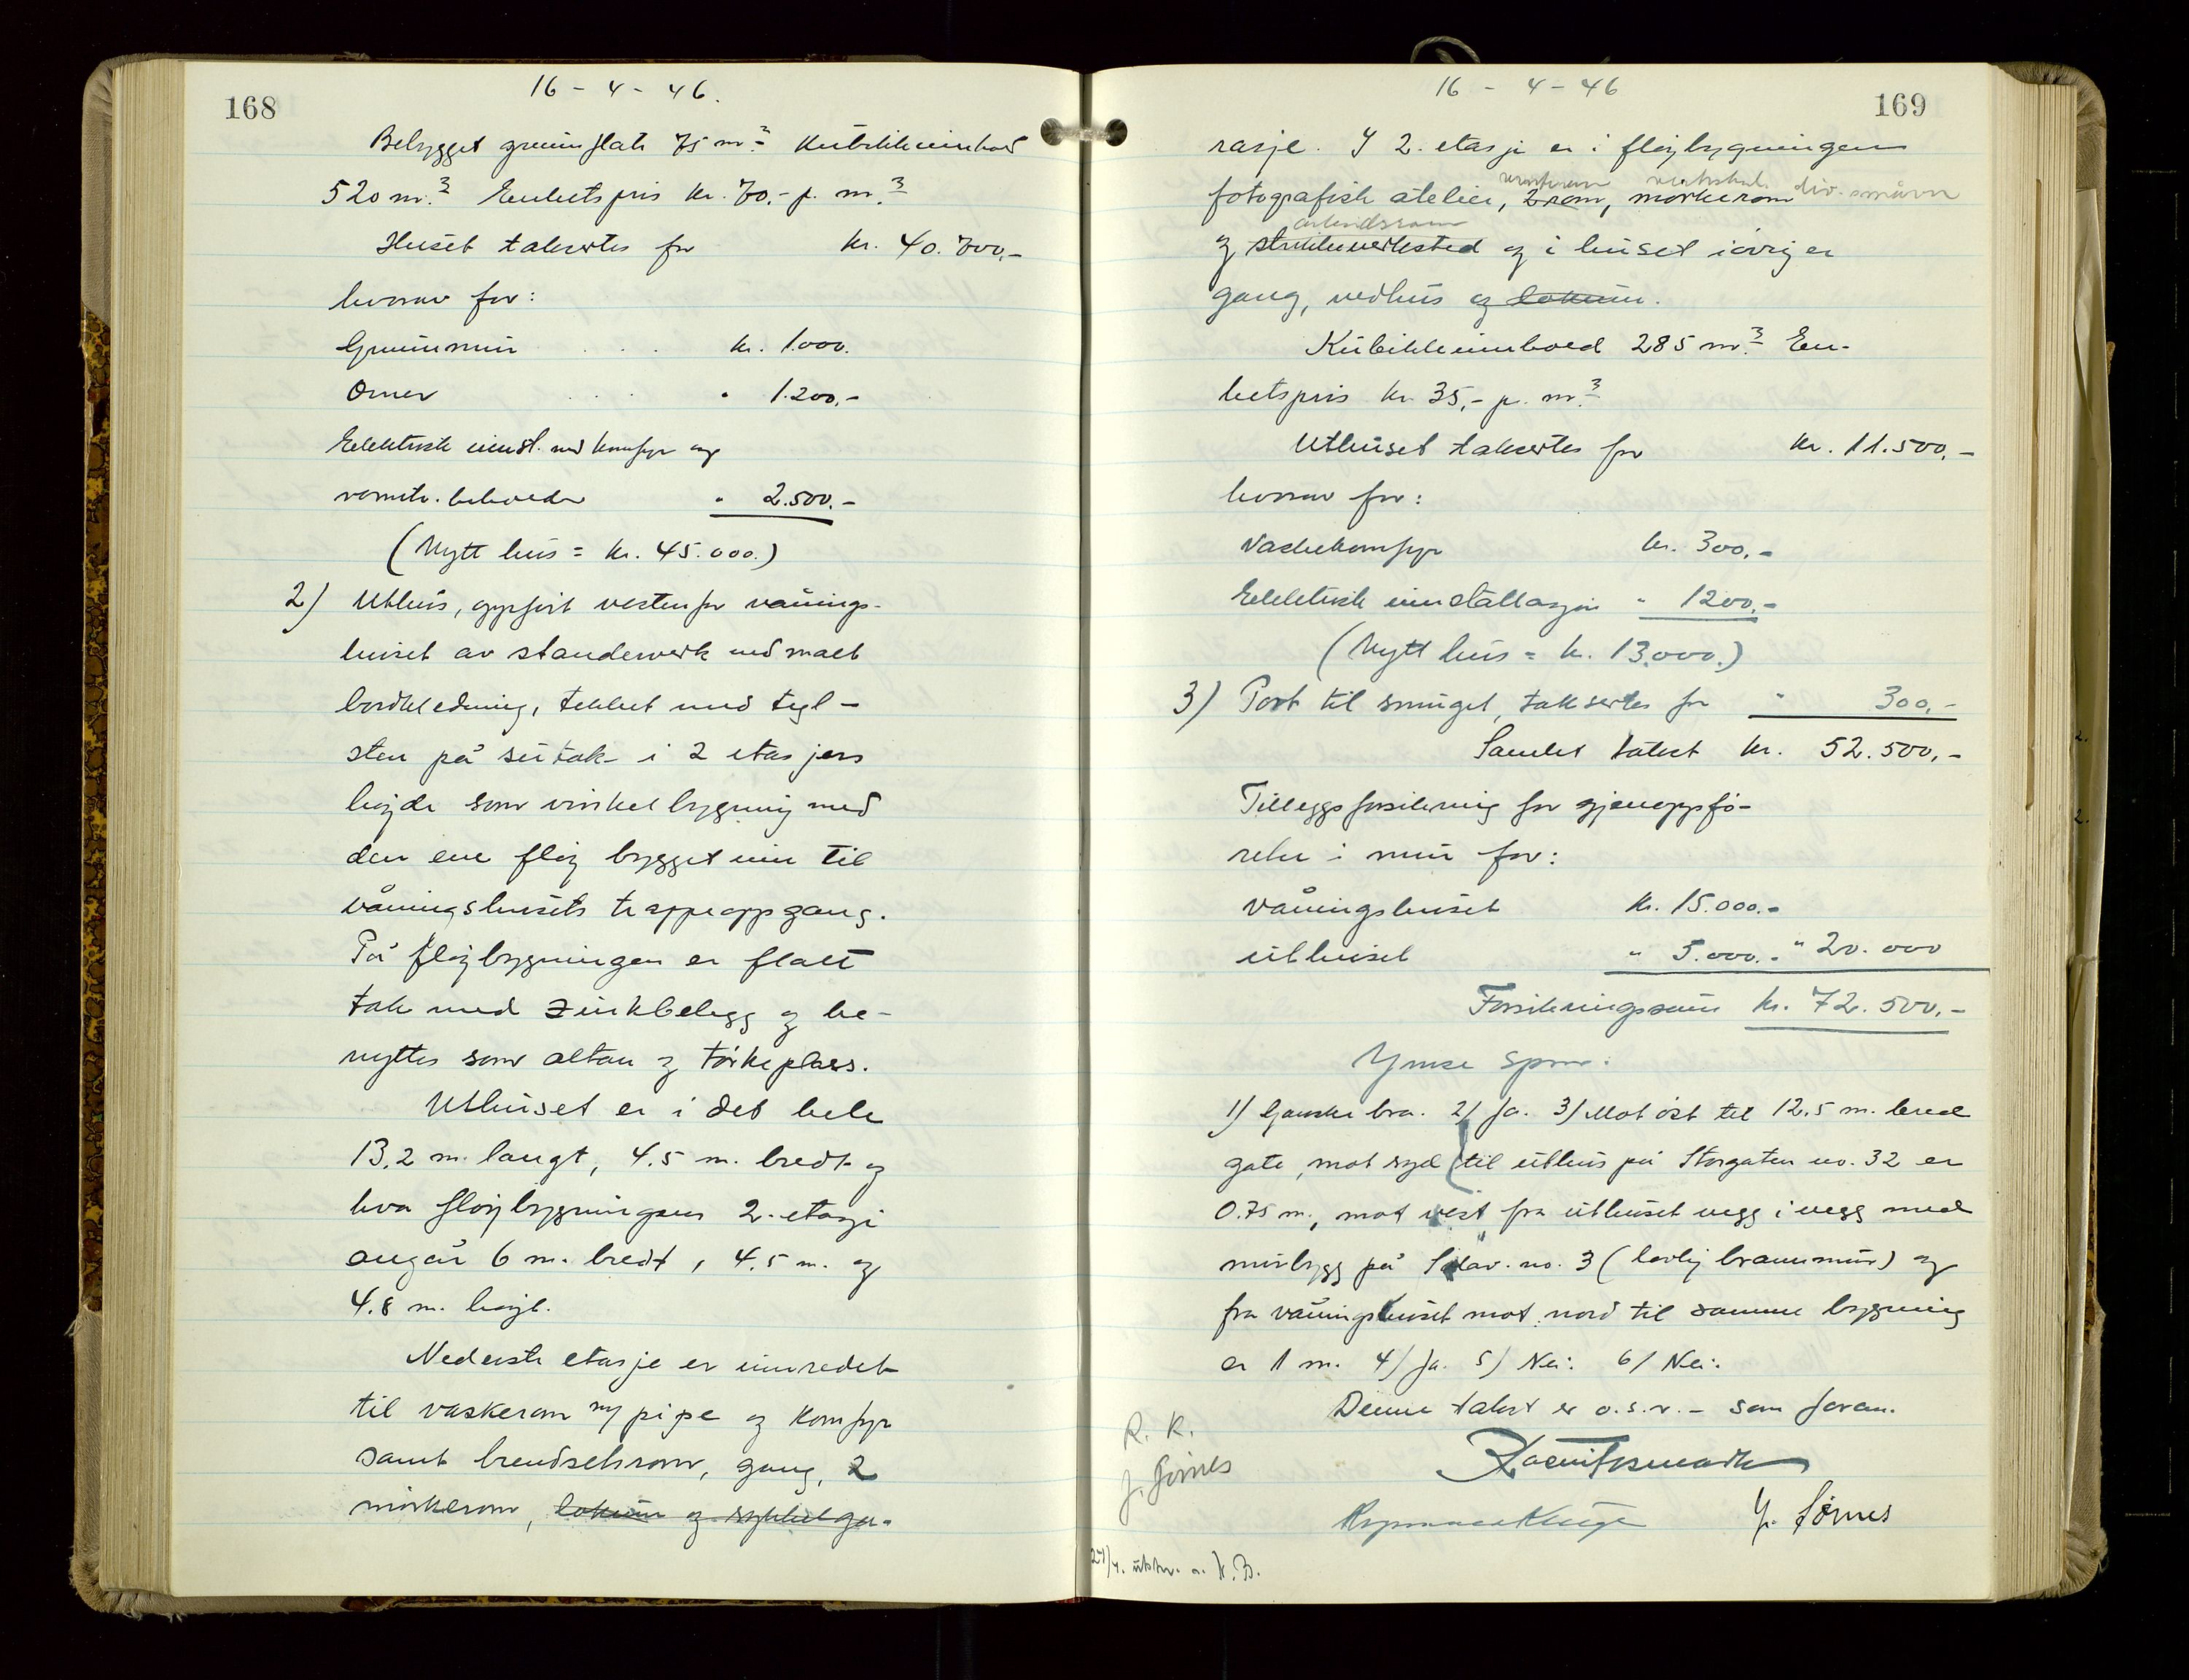 168
16 - 4 - 46.
Bebygget grunnflate 75 m² Kubikkinnhold
520 m³ Enhetspris kr. 70,- p. m³
Huset takseres for kr. 40.700,-
hvorav for:
Grunnmur . . . kr. 1.000.
Ovner . . . " 1.200,-
Elektrisk innst. med komfyr og
varmtv. beholder " 2.500,-
(Nytt hus = kr. 45.000.)
2) Uthus, oppført vestenfor vånings-
huset av standerverk med malt
bordkledning, tekket med tegl-
sten på sutak i 2 etasjers
høyde som vinkelbygning med
den ene fløy bygget inn til
våningshusets trappeoppgang.
På fløybygningen er flatt
tak med zinkbelegg og be-
nyttes som altan og tørkeplass.
Uthuset er i det hele
13,2 m. langt, 4.5 m. bredt og
hva fløybygningens 2. etasje
angår 6 m. bredt, 4.5 m. og
4.8 m. høyt.
Nederste etasje er innredet
til vaskerom m/ pipe og komfyr
samt brendselsrom, gang, 2
mørkerom, lokum og sykkelga-
169
16 - 4 - 46
rasje. I 2. etasje er i fløybygningen
div. smårom
fotografisk atelier, 2 rom, mørkerom
arbeidsrom
og snekkerverksted og i huset iøvrig er
gang, vedhus og lokum.
Kubikkinnhold 285 m³ En-
hetspris kr 35,- p. m³
Uthuset takseres for kr. 11.500,-
hvorav for:
Vaskekomfyr kr. 300,-
Elektrisk installasjon " 1200,-
(Nytt hus = kr. 13.000.)
3) Port til smuget, takseres for " 300,-
Samlet takst kr. 52.500,-
Tilleggsforsikring for gjenoppfø-
relse i mur for:
våningshuset kr. 15.000.-
uthuset " 5.000.- " 20.000
Forsikringssum kr. 72.500,-
Ymse spm:
1) Ganske bra. 2) Ja. 3) Mot øst til 12.5 m. bred
gate, mot syd (til uthus på Storgaten no. 32 er
0.75 m., mot vest fra uthuset vegg i vegg med
murbygg på no. 3 (lovlig brannmur) og
fra våningshuset mot nord til samme bygning
er 1 m. 4) Ja. 5) Nei. 6) Nei.
Denne takst er o.s.v. - som foran.
R. K.
J. Sørnes
J. Sørnes
27/4. utskr. a. K.B.